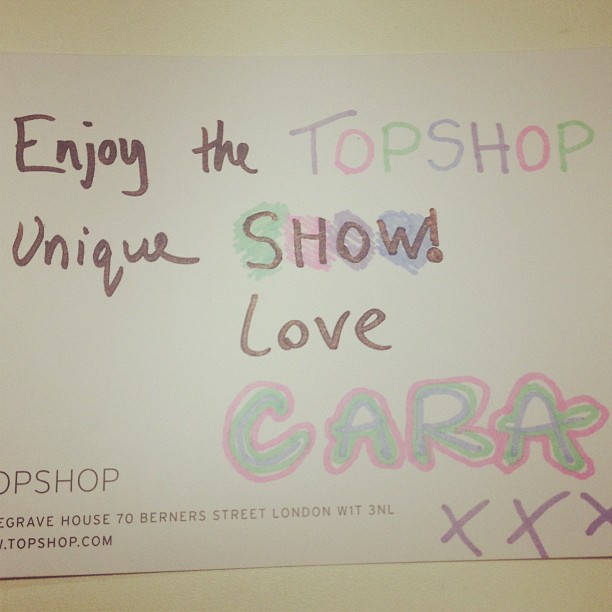 Enjoy the TOPSHOP
Unique SHOW!
Love
CARA
XXX
OPSHOP
EGRAVE HOUSE 70 BERNERS STREET LONDON W1T 3NL
.TOPSHOP.COM